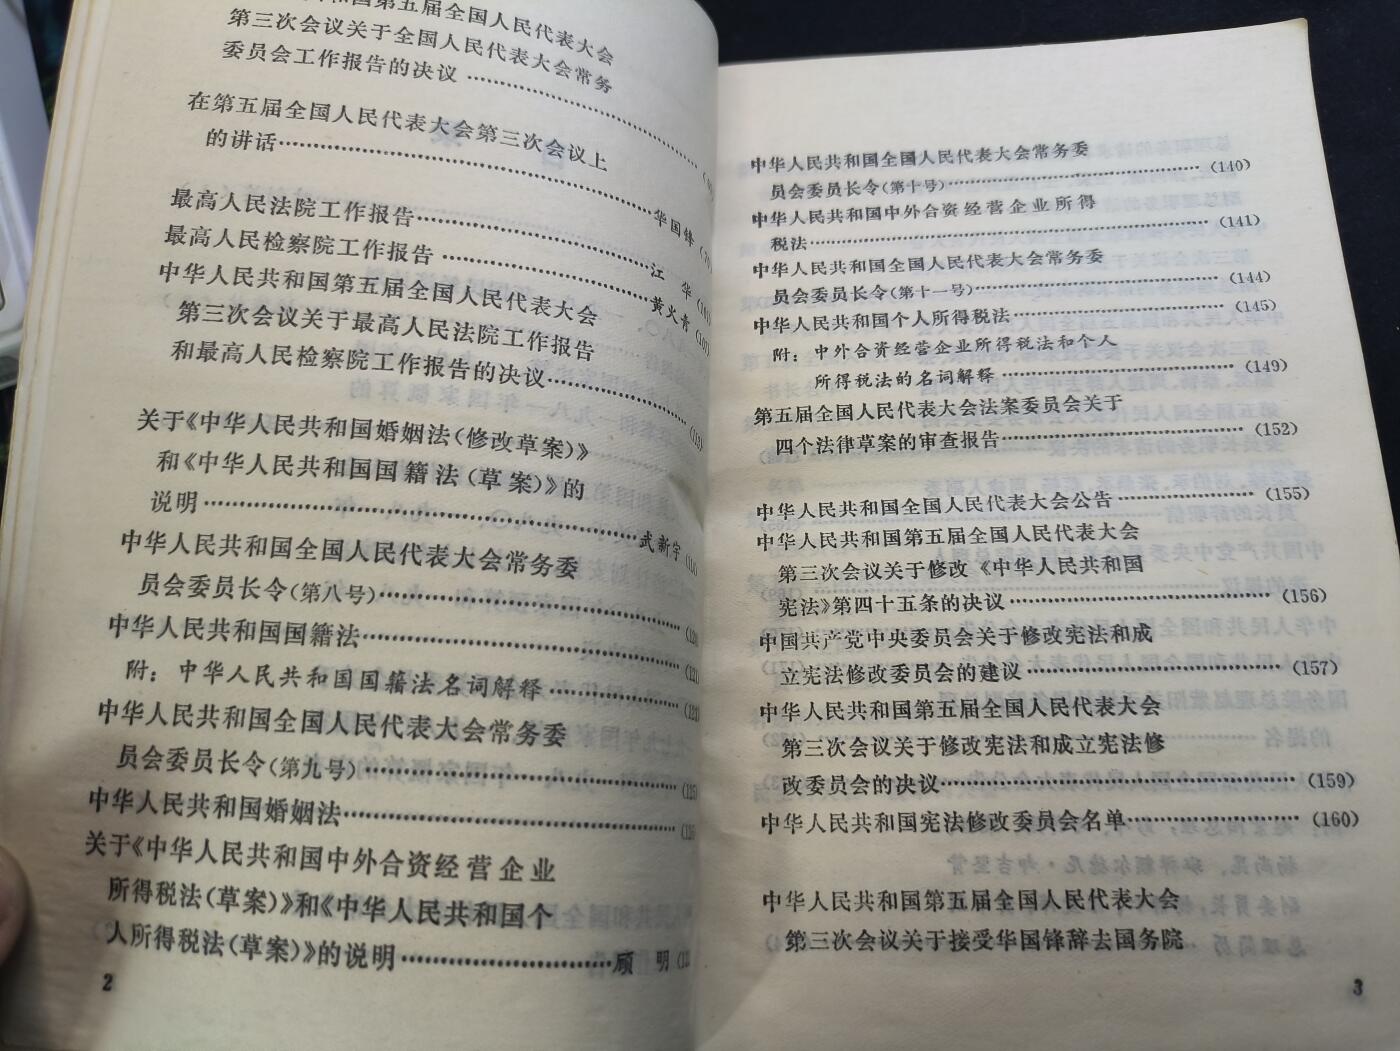 第五届全国人民代表大会
第三次会议关于全国人民代表大会常务
委员会工作报告的决议
在第五届全国人民代表大会第三次会议上
的讲话……华国锋
最高人民法院工作报告……江 华
最高人民检察院工作报告……黄火青
中华人民共和国第五届全国人民代表大会
第三次会议关于最高人民法院工作报告
和最高人民检察院工作报告的决议……
关于《中华人民共和国婚姻法(修改草案)》
和《中华人民共和国国籍法(草案)》的
说明……武新宇
中华人民共和国全国人民代表大会常务委
员会委员长令(第八号)……
中华人民共和国国籍法……(121)
附：中华人民共和国国籍法名词解释……
中华人民共和国全国人民代表大会常务委
员会委员长令(第九号)……(125)
中华人民共和国婚姻法……
关于《中华人民共和国中外合资经营企业
所得税法(草案)》和《中华人民共和国个
人所得税法(草案)》的说明……顾 明
2
中华人民共和国全国人民代表大会常务委
员会委员长令(第十号)……(140)
中华人民共和国中外合资经营企业所得
税法……(141)
中华人民共和国全国人民代表大会常务委
员会委员长令(第十一号)……(144)
中华人民共和国个人所得税法……(145)
附：中外合资经营企业所得税法和个人
所得税法的名词解释……(149)
第五届全国人民代表大会法案委员会关于
四个法律草案的审查报告……(152)
中华人民共和国全国人民代表大会公告……(155)
中华人民共和国第五届全国人民代表大会
第三次会议关于修改《中华人民共和国
宪法》第四十五条的决议……(156)
中国共产党中央委员会关于修改宪法和成
立宪法修改委员会的建议……(157)
中华人民共和国第五届全国人民代表大会
第三次会议关于修改宪法和成立宪法修
改委员会的决议……(159)
中华人民共和国宪法修改委员会名单……(160)
中华人民共和国第五届全国人民代表大会
第三次会议关于接受华国锋辞去国务院
3